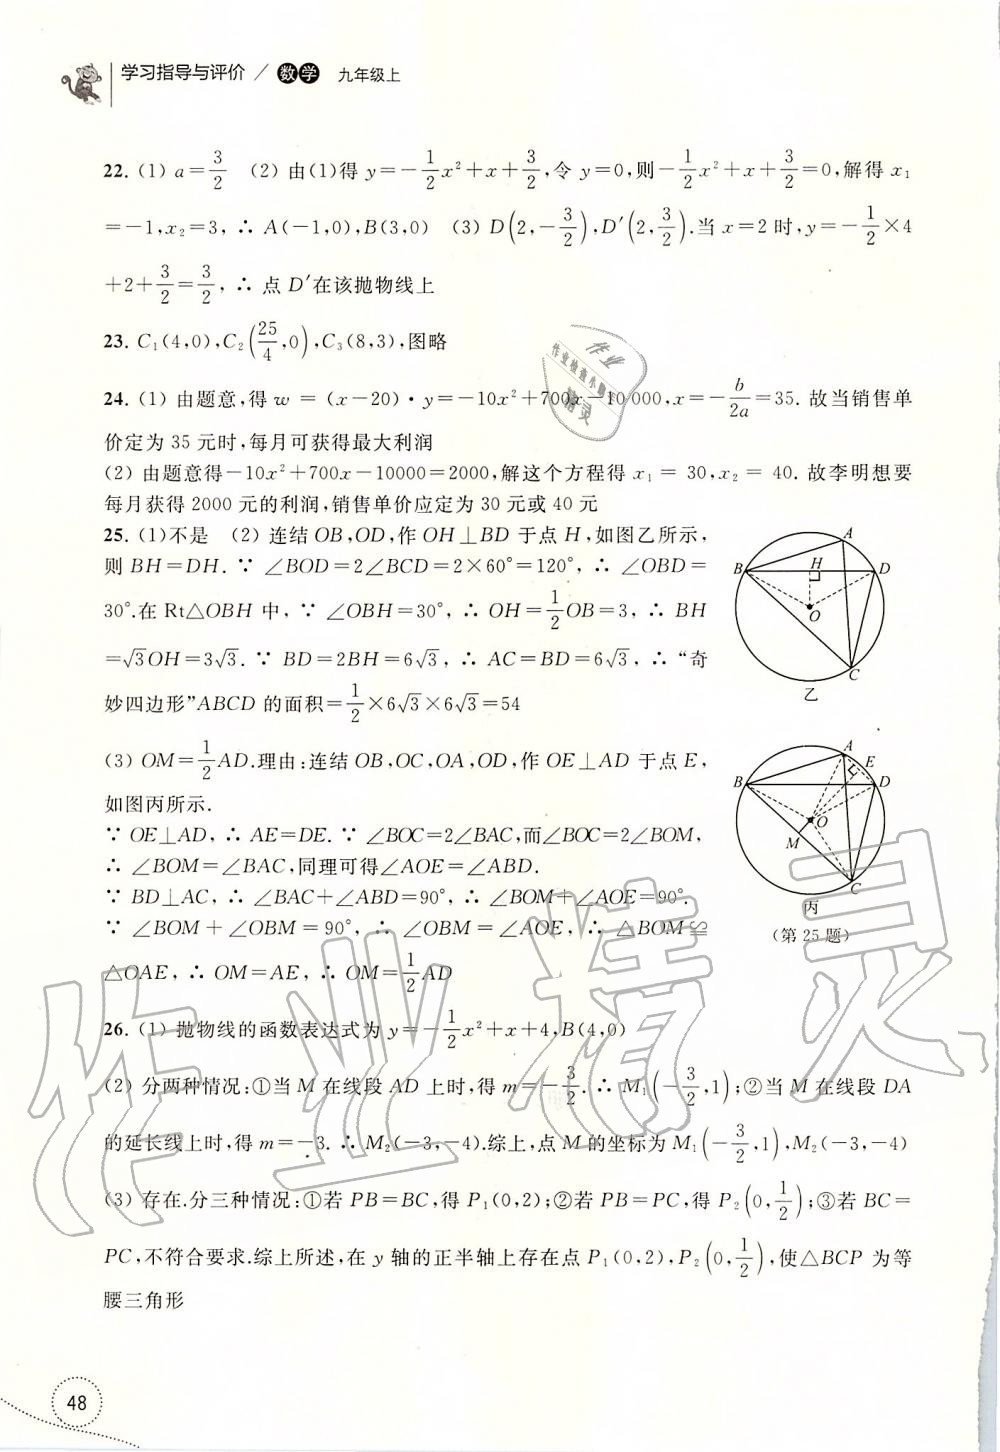 学习指导与评价 / 数学 九年级上
22. (1) a=3/2 (2) 由(1)得 y=-1/2x²+x+3/2,令 y=0,则-1/2x²+x+3/2=0,解得 x₁
=-1,x₂=3, ∴ A(-1,0),B(3,0) (3) D(2,-3/2),D′(2,3/2).当 x=2 时,y=-1/2×4
+2+3/2=3/2, ∴ 点 D′在该抛物线上
23. C₁(4,0),C₂(25/4,0),C₃(8,3),图略
24. (1) 由题意,得 w = (x-20)·y=-10x²+700x-10 000,x=-b/2a=35. 故当销售单
价定为 35 元时,每月可获得最大利润
(2) 由题意得-10x²+700x-10000=2000,解这个方程得 x₁ = 30,x₂ = 40. 故李明想要
每月获得 2000 元的利润,销售单价应定为 30 元或 40 元
25. (1)不是 (2) 连结 OB,OD,作 OH⊥BD 于点 H,如图乙所示,
则 BH=DH. ∵ ∠BOD=2∠BCD=2×60°=120°, ∴ ∠OBD=
30°.在 Rt△OBH 中, ∵ ∠OBH=30°, ∴ OH=1/2OB=3, ∴ BH
=√3OH=3√3. ∵ BD=2BH=6√3, ∴ AC=BD=6√3, ∴ “奇
妙四边形”ABCD 的面积=1/2×6√3×6√3=54
A
B
H
D
O
C
乙
(3) OM=1/2AD.理由:连结 OB,OC,OA,OD,作 OE⊥AD 于点 E,
如图丙所示.
∵ OE⊥AD, ∴ AE=DE. ∵ ∠BOC=2∠BAC,而∠BOC=2∠BOM,
∴ ∠BOM=∠BAC,同理可得∠AOE=∠ABD.
∵ BD⊥AC, ∴ ∠BAC+∠ABD=90°, ∴ ∠BOM+∠AOE=90°.
∵ ∠BOM + ∠OBM = 90°, ∴ ∠OBM = ∠AOE, ∴ △BOM≌
△OAE, ∴ OM=AE, ∴ OM=1/2AD
A
E
B
D
O
M
C
丙
(第 25 题)
26. (1) 抛物线的函数表达式为 y=-1/2x²+x+4,B(4,0)
(2) 分两种情况:①当 M 在线段 AD 上时,得 m=-3/2. ∴ M₁(-3/2,1);②当 M 在线段 DA
的延长线上时,得 m=-3. ∴ M₂(-3,-4).综上,点 M 的坐标为 M₁(-3/2,1),M₂(-3,-4)
(3) 存在.分三种情况:①若 PB=BC,得 P₁(0,2);②若 PB=PC,得 P₂(0,1/2);③若 BC=
PC,不符合要求.综上所述,在 y 轴的正半轴上存在点 P₁(0,2),P₂(0,1/2),使△BCP 为等
腰三角形
48
作业精灵
作业
作业检查小助手
精灵